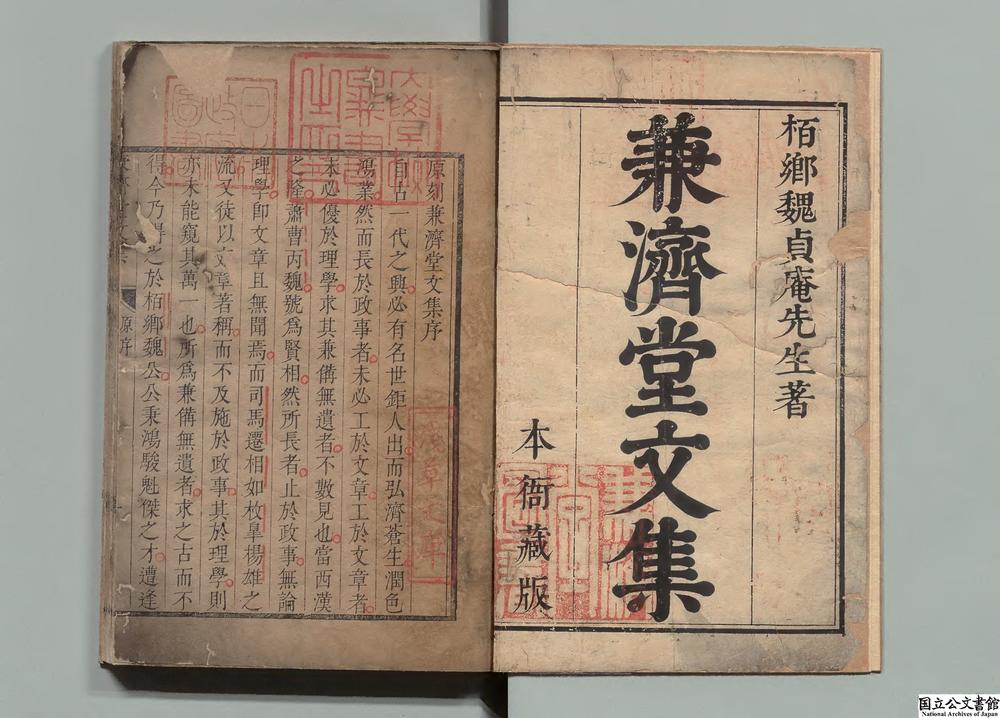 栢鄕魏貞庵先生著
兼濟堂文集
本衙藏版
原刻兼濟堂文集序
自古一代之興必有名世鉅人出而弘濟蒼生潤色
鴻業然而長於政事者未必工於文章工於文章者
未必優於理學求其兼備無遺者不數見也當西漢
之隆蕭曹丙魏號爲賢相然所長者止於政事無論
理學卽文章且無聞焉而司馬遷相如枚皐揚雄之
流又徒以文章著稱而不及施於政事其於理學則
亦未能窺其萬一也所爲兼備無遺者求之古而不
得今乃得之於栢鄕魏公公秉鴻駿魁傑之才遭逢
原序
日本
政府
圖書
淺草文庫
国立公文書館
National Archives of Japan